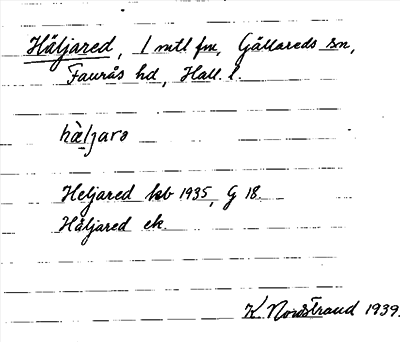 Häljared, 1 mtl fm, Gällareds sn,
Faurås hd, Hall. l.
hàljarə
Heljared kb 1935, G 18.
Häljared ek.
K. Nordstrand 1939.